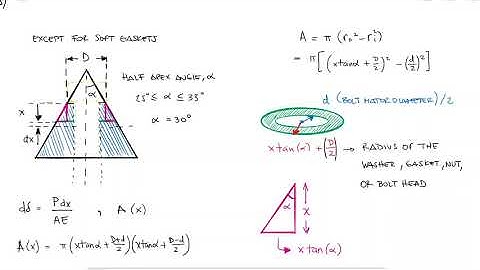 EXCEPT FOR SOFT GASKETS
D
α
x
dx
HALF APEX ANGLE, α
25° ≤ α ≤ 33°
α = 30°
dδ = Pdx / AE , A(x)
A(x) = π(xtanα + (D+d)/2)(xtanα + (D-d)/2)
A = π (r₀² - rᵢ²)
= π[(xtanα + D/2)² - (d/2)²]
d (BOLT MAJOR DIAMETER)/2
xtan(α) + (D/2) → RADIUS OF THE
WASHER, GASKET, NUT,
OR BOLT HEAD
α
x
xtan(α)